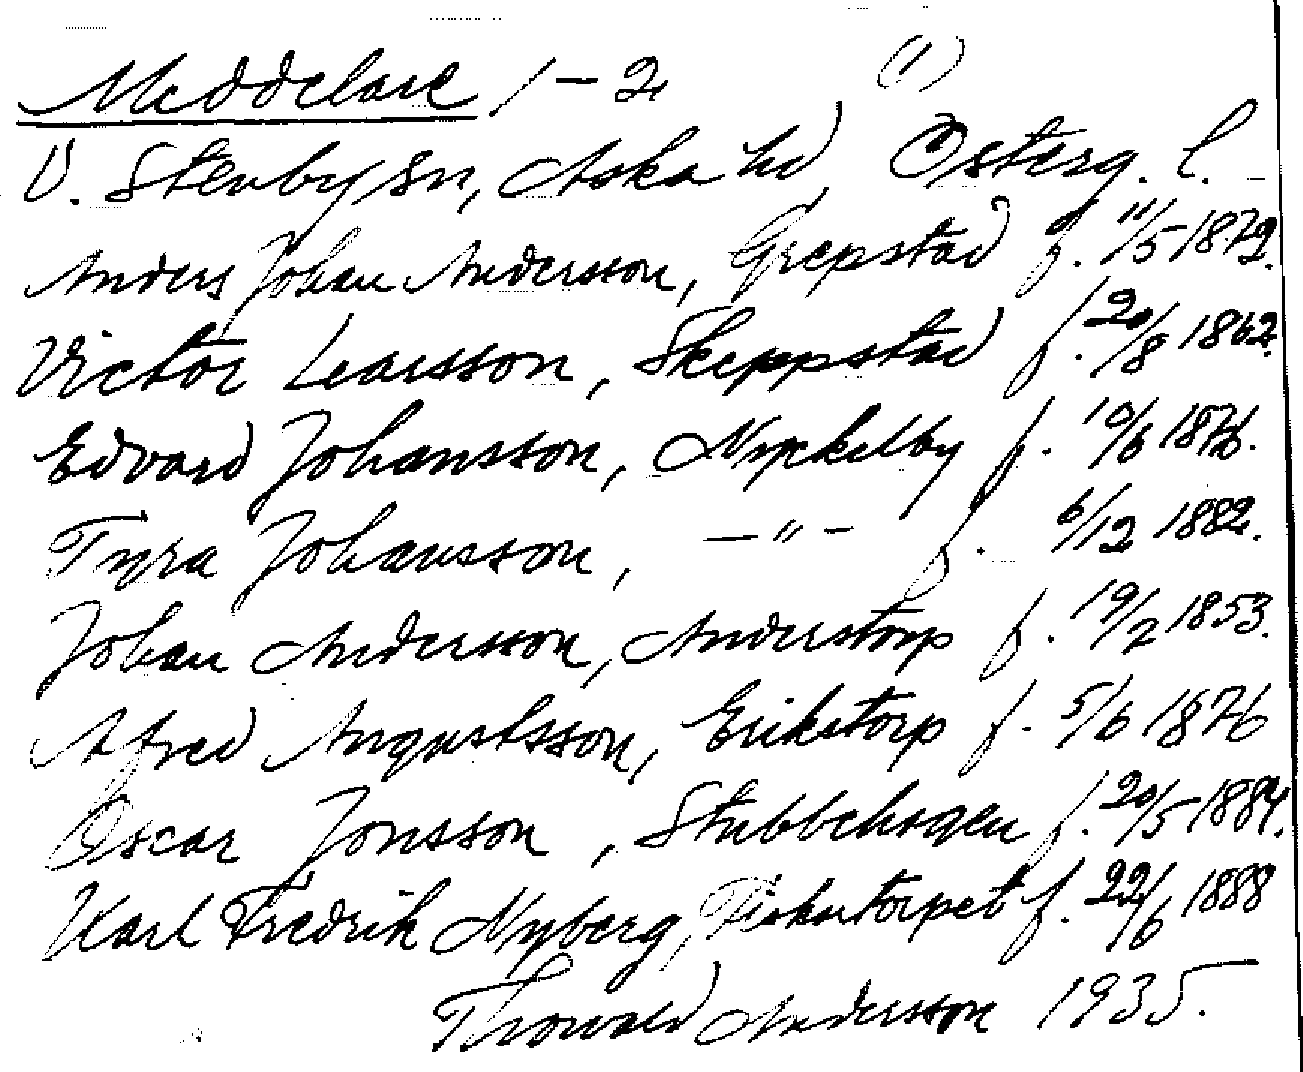 Meddelare 1-2 (1)
V. Stenby sn, Aska hd, Österg. l.
Anders Johan Andersson, Grepstad f. 11/5 1879.
Victor Learsson, Skeppstad f. 20/8 1862.
Edvard Johansson, Nyckelby f. 10/6 1876.
Tyra Johansson, —"— f. 6/12 1882.
Johan Andersson, Anderstorp f. 19/2 1853.
Alfred Augustsson, Erikstorp f. 5/6 1876
Oscar Jonsson, Stubbehagen f. 20/5 1884.
Karl Fredrik Nyberg, f. 22/6 1888
Thorvald Andersson 1935.